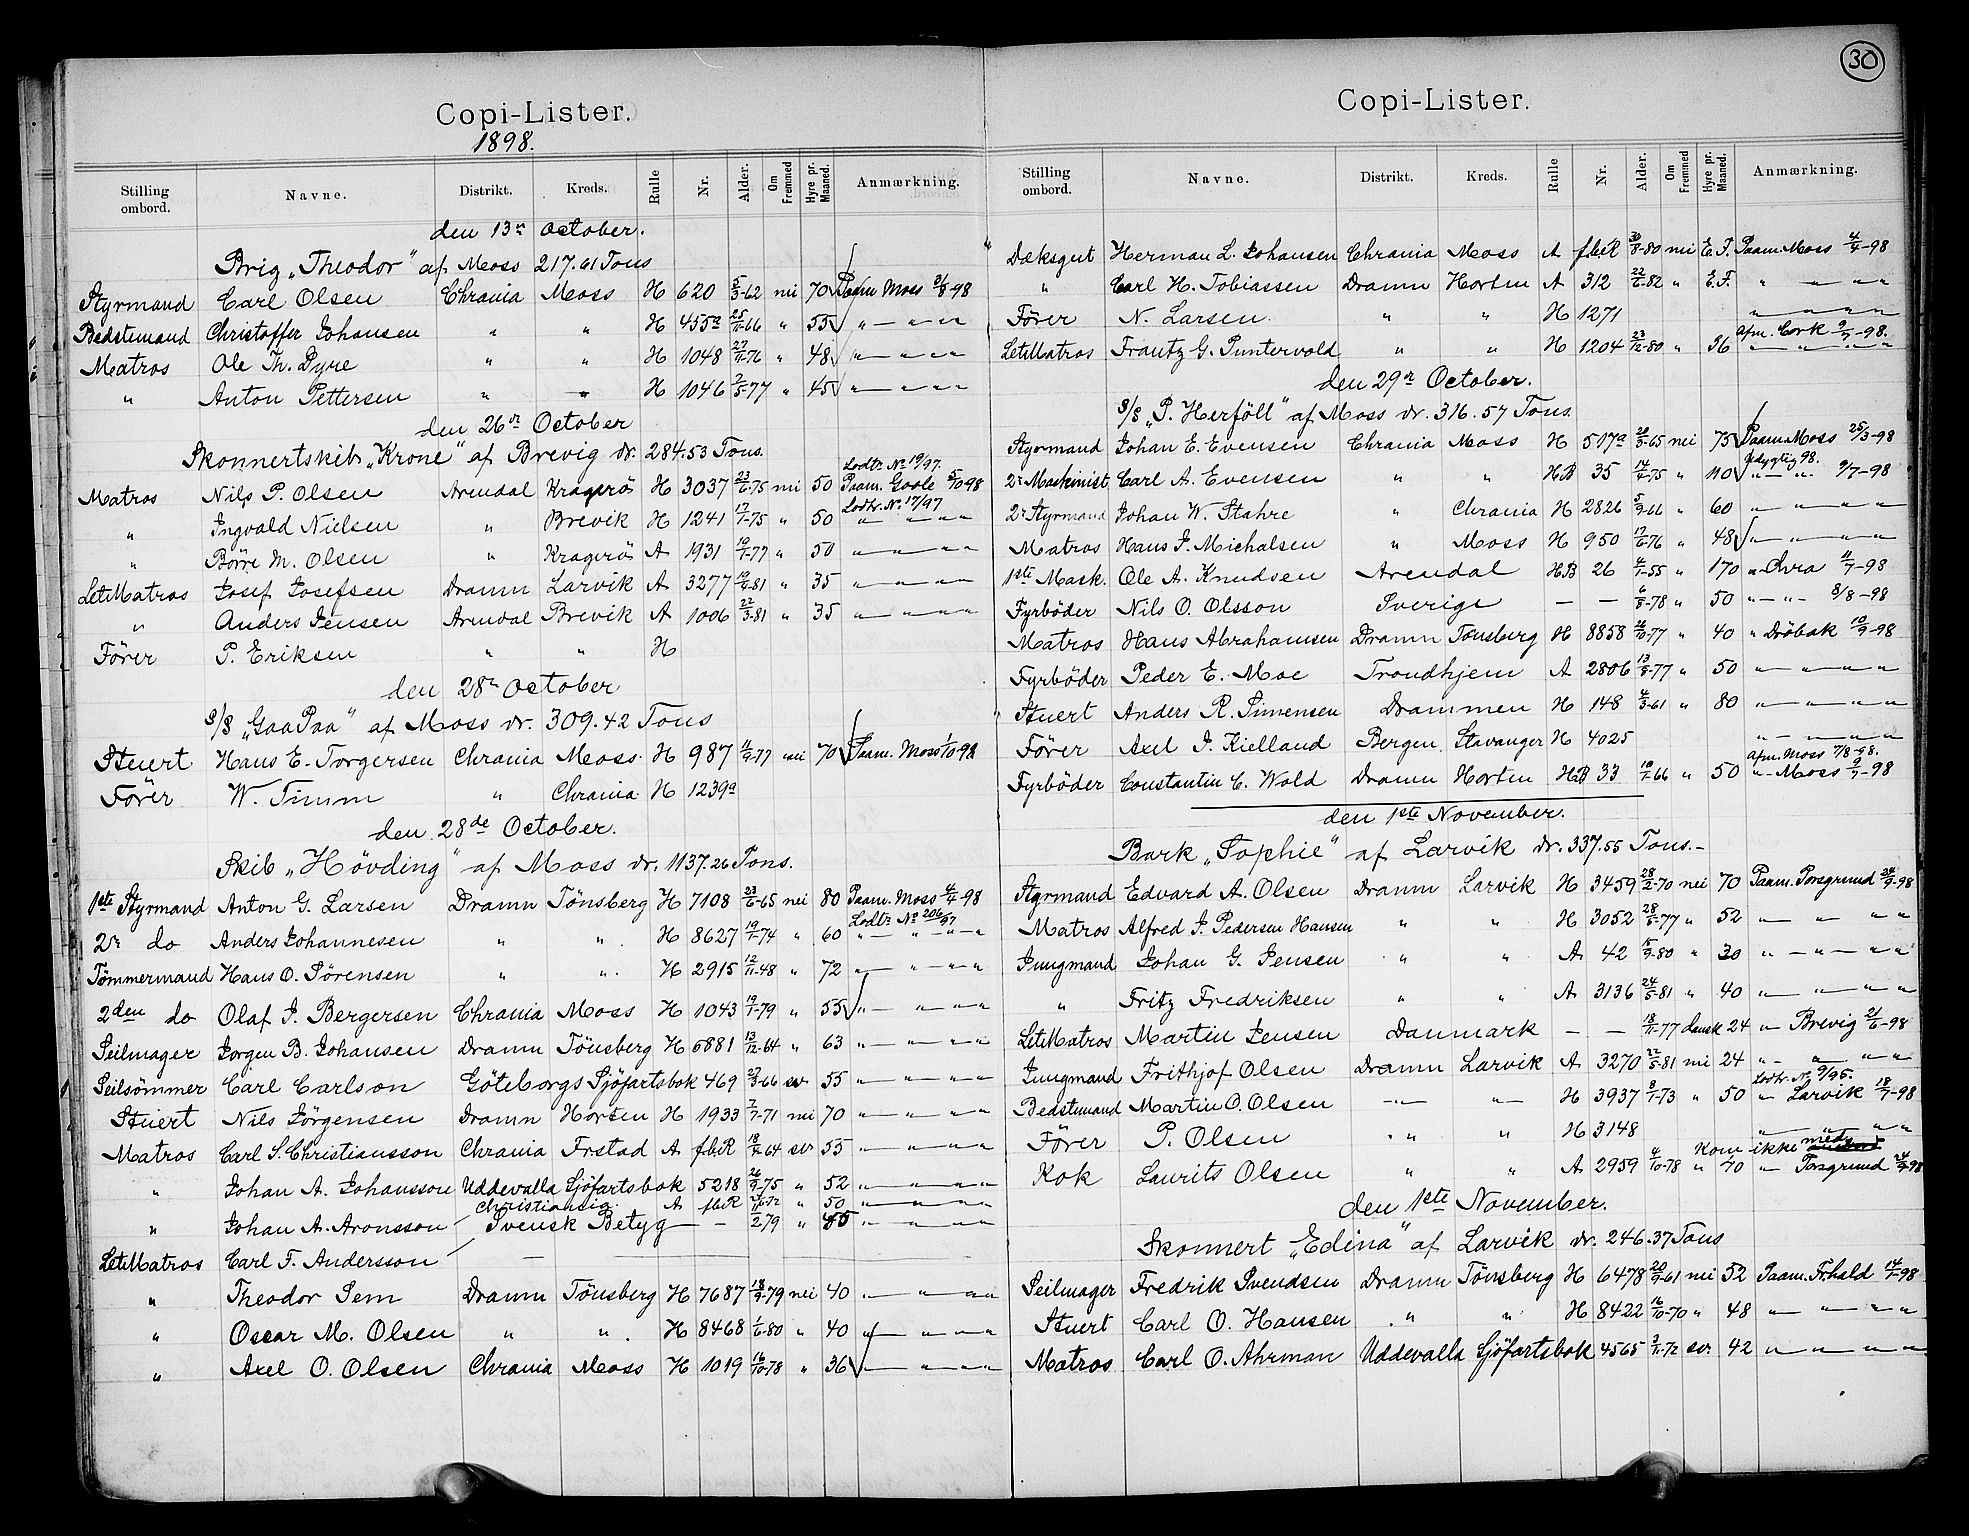 30
Copi-Lister.
1898.
Stilling ombord. Navne. Distrikt. Kreds. Rulle Nr. Alder. Om Fremmed Hyre pr. Maaned. Anmærkning.
den 13de October.
Brig „Theodor" af Moss 217.61 Tons
Styrmand Carl Olsen Chrania Moss H 620 5/3-62 nei 70 Paam Moss 3/8 98
Bedstemand Christoffer Johansen " " H 455a 25/11-66 " 55 " — " "
Matros Ole Th. Dyre " " H 1048 27/11-76 " 48 " — " "
" Anton Pettersen " " H 1046 2/5-77 " 45 " — " "
den 26de October
Skonnertskib „Krone" af Brevig dr. 284.53 Tons.
Lodtr. No 19/97.
Matros Nils P. Olsen Arendal Kragerö H 3037 23/6-75 nei 50 Paam. Goole 5/10 98
Lodtr. No. 17/97
" Ingvald Nielsen " Brevik H 1241 17/1-75 " 50 " — " "
" Börre M. Olsen " Kragerö A 1931 19/1-77 " 50 " — " "
LetMatros Josef Josefsen Dramn Larvik A 3277 19/6-81 35 " — " "
" Anders Jensen Arendal Brevik A 1006 22/3-81 " 35 " — " "
Förer P. Eriksen " " H
den 28de October
S/S „GaaPaa" af Moss dr. 309.42 Tons
Stuert Hans E. Torgersen Chrania Moss H 987 11/9-77 nei 70 Paam. Moss 1/10 98
Förer W. Timm " Chrania H 1239a
den 28de October.
Skib „Hövding" af Moss dr. 1137.26 Tons.
1ste Styrmand Anton G. Larsen Dramn Tönsberg H 7108 23/6-65 nei 80 Paam. Moss 4/4-98
Lodtr. No 206/97
2n do Anders Johannesen " " H 8627 19/1-74 " 60 " — " "
Tömmermand Hans O. Sörensen " " H 2915 12/11-48 " 72 " — " "
2den do Olaf J. Bergersen Chrania Moss H 1043 19/1-79 " 55 " — " "
Seilmager Jorgen B. Johansen Dramn Tönsberg H 6881 13/12-64 " 63 " — " "
Seilsömmer Carl Carlson Göteborgs Sjöfartsbok 469 27/3-66 sv 55 " — " "
Stuert Nils Jörgensen Dramn Horten H 1933 7/7-71 nei 70 " — " "
Matros Carl S. Christiansson Chrania Frstad A f.b.R 18/2-64 sv 55 " — " "
" Johan A. Johansson Uddevalla Sjöfartsbok 5218 26/9-75 " 52 " — " "
Christiansig. A fbR 72 " 50 " — " "
" Johan A. Aronsson Svensk Betyg — — 79 " 45 " — " "
LetMatros Carl F. Andersson
" Theodor Sem Dramn Tönsberg H 7687 18/9-79 nei 40 " — " "
" Oscar M. Olsen " " H 8468 1/6-80 " 40 " — " "
" Axel O. Olsen Chrania Moss H 1019 16/10-78 " 36 " — " "
Copi-Lister.
Stilling ombord. Navne. Distrikt. Kreds. Rulle Nr. Alder. Om Fremmed Hyre pr. Maaned. Anmærkning.
Dæksgut Herman L. Johansen Chrania Moss A f.b.R 30/8-80 nei E.F. Paam. Moss 4/4-98
" Carl H. Tobiassen Dramn Horten A 312 22/6-82 " E.F. " — " "
Förer N. Larsen. " " H 1271 " — " "
Afm. Cork 9/7-98.
LetMatros Frantz G. Puntervold " " H 1204 23/12-80 " 36 " — " "
den 29de October.
S/S „P. Herföll" af Moss dr. 316.57 Tons.
Styrmand Johan E. Evensen Chrania Moss H 517a 28/3-65 nei 75 Paam. Moss 25/3-98
2n Maskinist Carl A. Evensen " " HB 35 14/4-75 " 110 " — " 9/7-98
2n Styrmand Johan W. Stahre " Chrania H 2826 5/9-66 " 60 " — " "
Matros Hans J. Michalsen " Moss H 950 17/6-76 " 48 " — " "
1ste Mask. Ole A. Knudsen Arendal HB 26 4/1-55 " 170 " Chra 11/7-98
Fyrböder Nils O. Olsson Sverige — — 6/8-78 " 50 " — " 8/8-98
Matros Hans Abrahamsen Dramn Tönsberg H 8858 16/10-77 " 40 " Dröbak 10/9-98
Fyrböder Peder E. Moe Trondhjem A 2806 13/8-77 " 50 " — " "
Stuert Anders R. Simensen Drammen H 148 4/3-61 " 80 " — " "
Förer Axel J. Kielland Bergen Stavanger H 4025 " — " "
Afm. Moss 7/8-98.
Fyrböder Constantin C. Wold Dramn Horten HB 33 18/1-66 " 50 " — Moss 9/7-98
den 1ste November.
Bark „Sophie" af Larvik dr. 337.55 Tons.—
Styrmand Edvard A. Olsen Dramn Larvik H 3459 28/2-70 nei 70 Paam. Porsgrund 24/9-98
Matros Alfred J. Pedersen Hansen " " H 3052 28/5-77 " 52 " — " "
Jungmand Johan G. Jensen " " A 42 15/9-80 " 30 " — " "
" Fritz Fredriksen " " A 3136 24/5-81 " 40 " — " "
LetMatros Martin Jensen Danmark — — 18/11-77 dansk 24 " Brevig 21/6-98
Jungmand Frithjof Olsen Dramn Larvik A 3270 22/5-81 nei 24 " — " "
Lodtr. No 9/95.
Bedstemand Martin O. Olsen " " H 3937 8/1-73 " 50 " Larvik 18/7-98
Förer P. Olsen " " H 3148 " — " "
Kom ikke med
Kok Laurits Olsen " " A 2959 4/10-78 " 40 " Porsgrund 24/9-98
den 1ste November.
Skonnert „Edina" af Larvik dr. 246.37 Tons
Seilmager Fredrik Svendsen Dramn Tönsberg H 6478 20/9-61 nei 52 Paam. Frhald 14/7-98
Stuert Carl O. Hansen " " H 8422 16/10-70 " 48 " — " "
Matros Carl O. Ahrman Uddevalla Sjöfartsbok 4565 3/11-72 sv. 42 " — " "